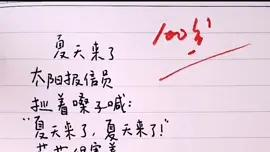 夏天来了
100分
太阳报信员
扯着嗓子喊:
“夏天来了,夏天来了!”